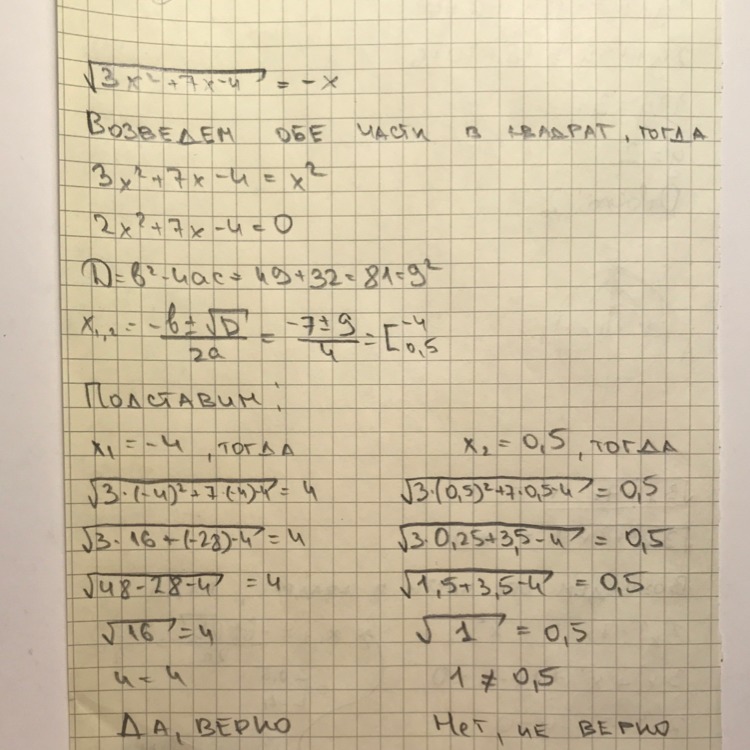 √(3x²+7x-4) = -x
Возведем обе части в квадрат, тогда
3x²+7x-4 = x²
2x²+7x-4=0
D=b²-4ac= 49+32=81=9²
x₁,₂ = (-b±√D)/2a = (-7±9)/4 = [-4 0,5
Подставим:
x₁ = -4, тогда
√(3·(-4)²+7·(-4)-4) = 4
√(3·16+(-28)-4) = 4
√(48-28-4) = 4
√16 = 4
4 = 4
Да, верно
x₂ = 0,5, тогда
√(3·(0,5)²+7·0,5-4) = 0,5
√(3·0,25+3,5-4) = 0,5
√(1,5+3,5-4) = 0,5
√1 = 0,5
1 ≠ 0,5
Нет, не верно